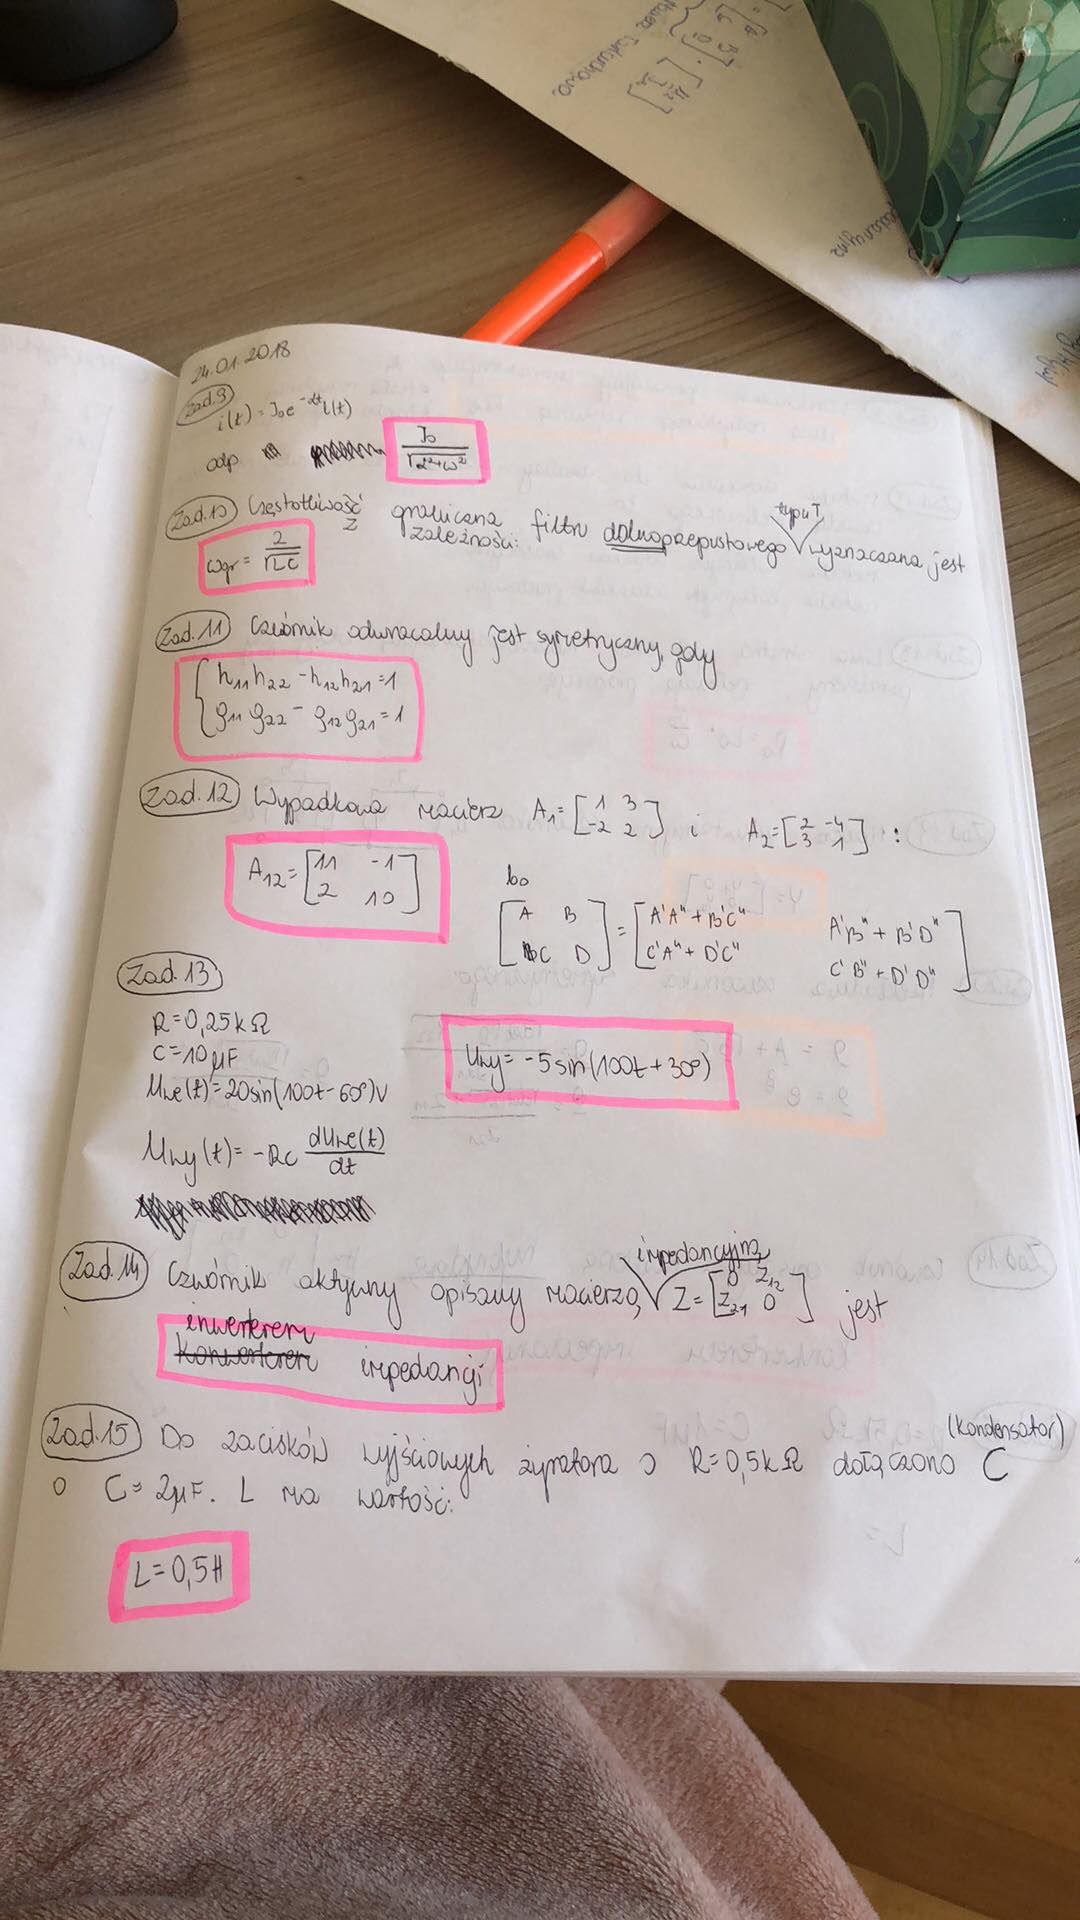 24.01.2018
Zad.9
i(t) = J₀e^-αt 1(t)
odp J₀/√α²+ω²
Zad.10 Częstotliwość graniczna filtru dolnoprzepustowego typu T wyznaczana jest
z zależności:
ωgr = 2/√LC
Zad.11 Czwórnik odwracalny jest symetryczny, gdy
h₁₁h₂₂ - h₁₂h₂₁ = 1
g₁₁g₂₂ - g₁₂g₂₁ = 1
Zad.12 Wypadkowa macierz A₁ = [1 3; -2 2] i A₂ = [2 -4; 3 1] :
A₁₂ = [11 -1; 2 10]
bo
[A B; C D] = [A'A" + B'C" A'B" + B'D"; C'A" + D'C" C'B" + D'D"]
Zad.13
R = 0,25kΩ
C = 10μF
Uwe(t) = 20sin(100t - 60°)V
Uwy = -5sin(100t + 30°)
Uwy(t) = -RC dUwe(t)/dt
Zad.14 Czwórnik aktywny opisany macierzą impedancyjną Z = [0 Z₁₂; Z₂₁ 0] jest
inwerterem
konwerterem impedancji
Zad.15 Do zacisków wyjściowych żyratora o R = 0,5kΩ dołączono C (kondensator)
o C = 2μF. L ma wartość:
L = 0,5H